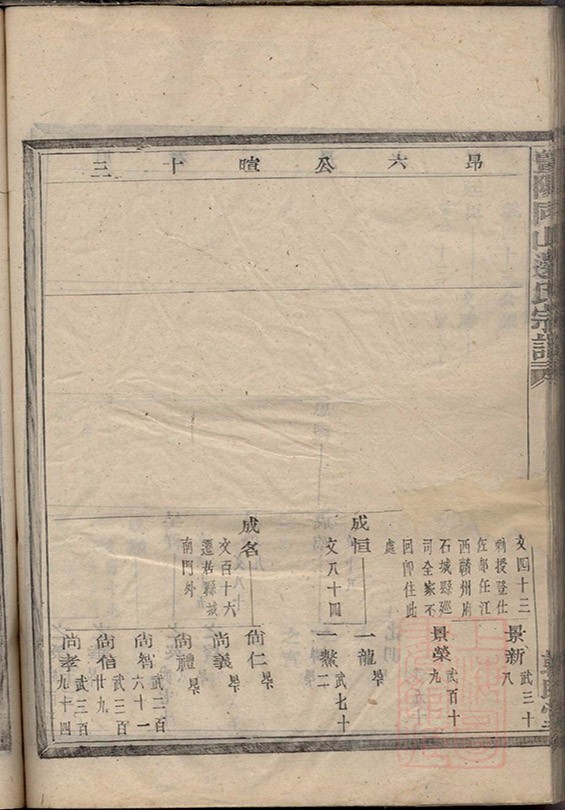 暨陽同山邊氏宗譜
昂六公暄十三
文四十三
例授登仕
佐郎任江
西贛州府
石城縣巡
司全家不
回卽住此
處
成恒
文八十四
成名
文百十六
遷居縣城
南門外
景新
武三十
八
景榮
武百十
九
一龍
早卒
一鰲
武七十
二
尙仁
早卒
尙義
早卒
尙禮
早卒
尙智
武三百
六十一
尙信
武三百
廿九
尙孝
武三百
九十四